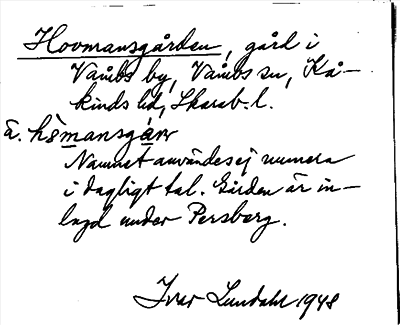 Hovmansgården, gård i
Våmbs by, Våmbs sn, Kå-
kinds hd, Skarab. l.
Namnet användes ej numera
i dagligt tal. Gården är in-
lagd under Persberg.
Ivar Lundahl 1948